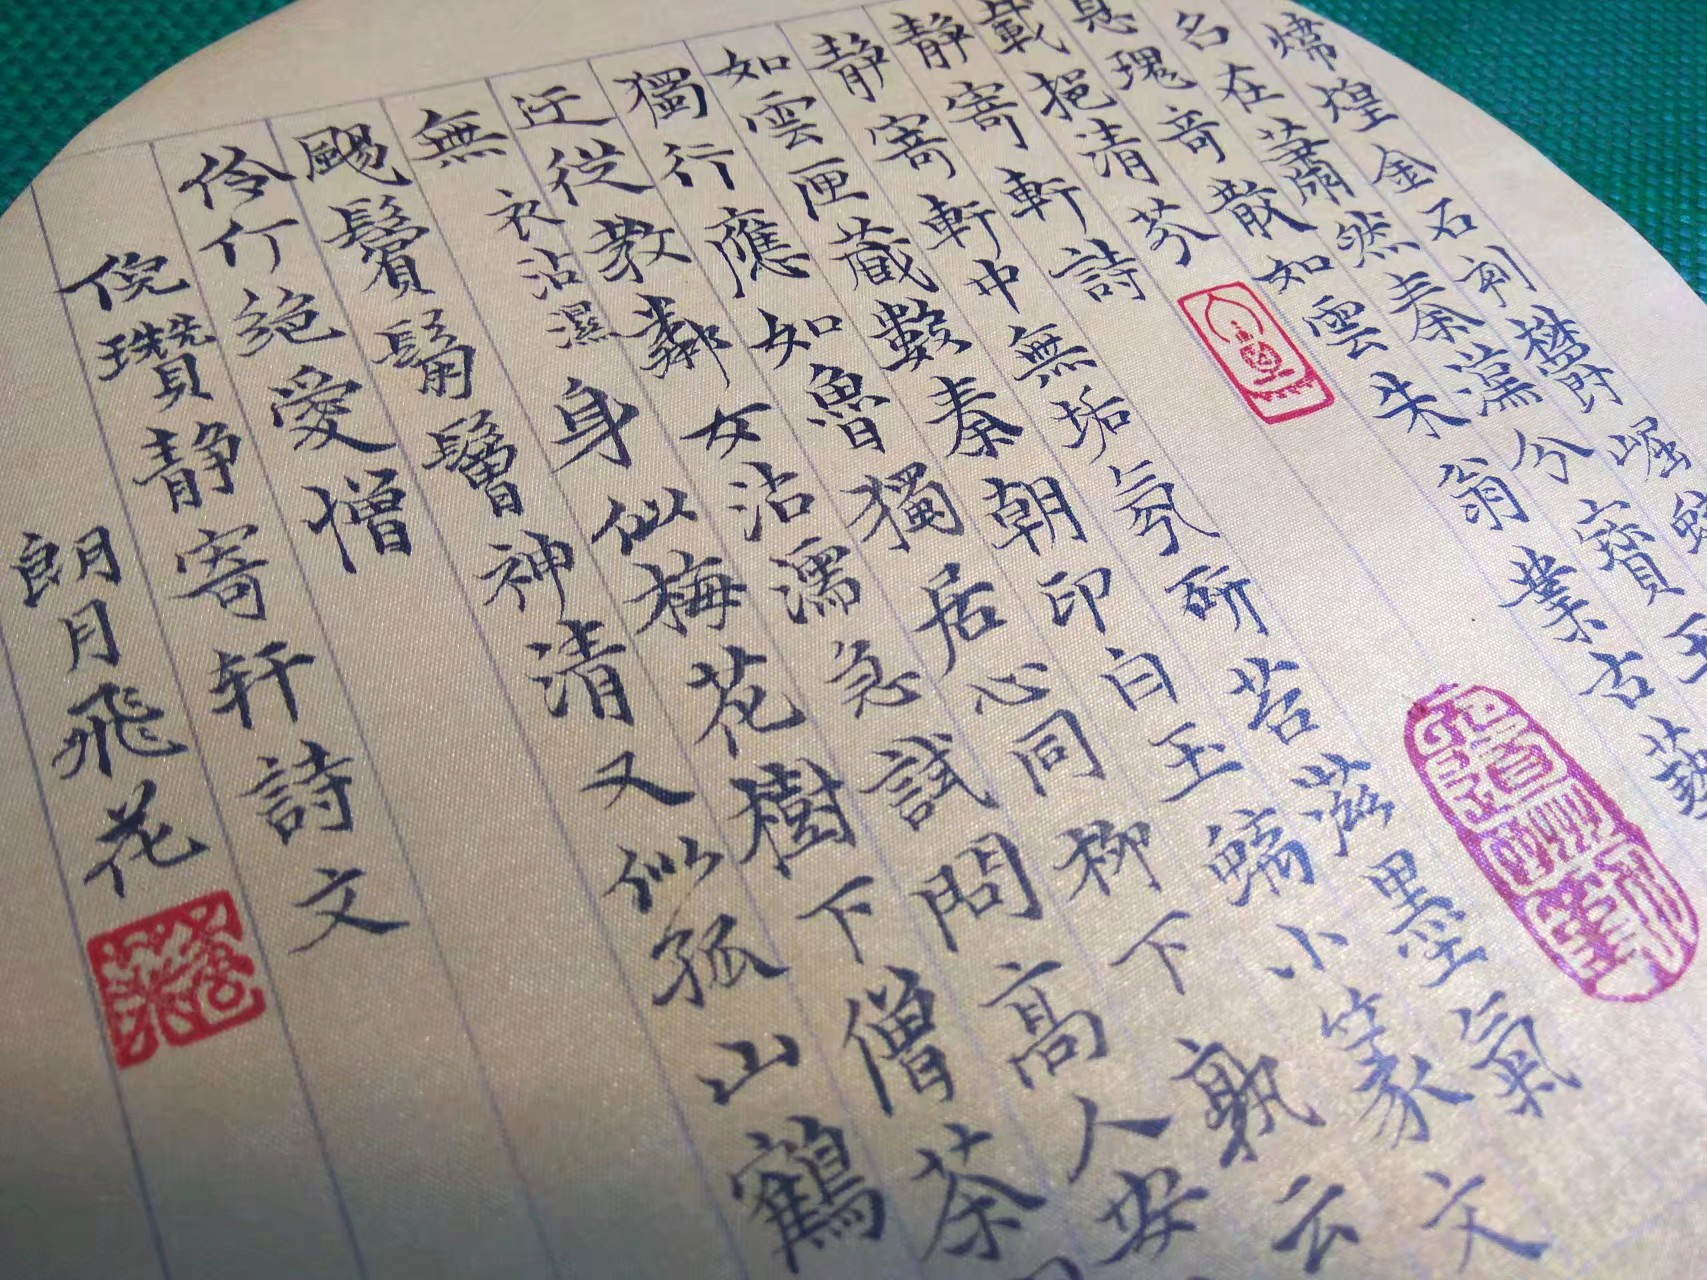 煒煌金石刊欝崛螭
名在蕭然秦漢分寳玉
息瑰竒散如雲朱翁業古藝
載挹清芬
静寄軒詩
静寄軒中無垢氛研苔滋墨氣
如雲匣藏數秦朝印白玉螭小篆文
獨行應如魯獨居心同柳下孰云
迂從教鄰女沾濡急試問高人安
無衣沾濕身似梅花樹下僧茶
颺鬢鬅鬙神清又似孤山鶴
伶仃絶愛憎
倪瓚静寄轩詩文
朗月飛花